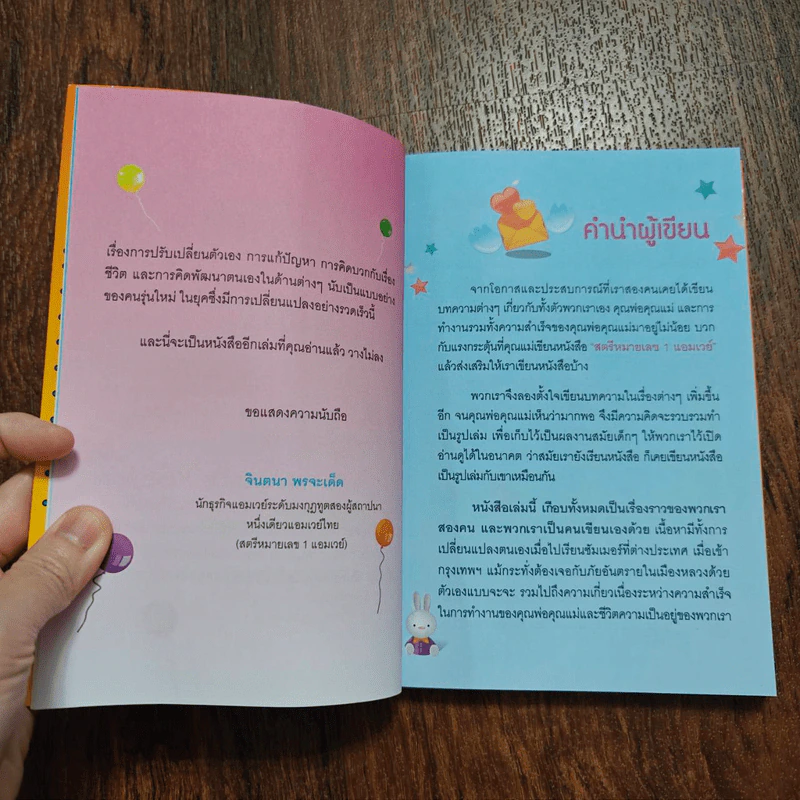 เรื่องการปรับเปลี่ยนตัวเอง การแก้ปัญหา การคิดบวกกับเรื่อง
ชีวิต และการคิดพัฒนาตนเองในด้านต่างๆ นับเป็นแบบอย่าง
ของคนรุ่นใหม่ ในยุคซึ่งมีการเปลี่ยนแปลงอย่างรวดเร็วนี้
และนี่จะเป็นหนังสืออีกเล่มที่คุณอ่านแล้ว วางไม่ลง
ขอแสดงความนับถือ
จินตนา พรจะเด็ด
นักธุรกิจแอมเวย์ระดับมงกุฎทูตสองผู้สถาปนา
หนึ่งเดียวแอมเวย์ไทย
(สตรีหมายเลข 1 แอมเวย์)
คำนำผู้เขียน
จากโอกาสและประสบการณ์ที่เราสองคนเคยได้เขียน
บทความต่างๆ เกี่ยวกับทั้งตัวพวกเราเอง คุณพ่อคุณแม่ และการ
ทำงานรวมทั้งความสำเร็จของคุณพ่อคุณแม่มาอยู่ไม่น้อย บวก
กับแรงกระตุ้นที่คุณแม่เขียนหนังสือ "สตรีหมายเลข 1 แอมเวย์"
แล้วส่งเสริมให้เราเขียนหนังสือบ้าง
พวกเราจึงลองตั้งใจเขียนบทความในเรื่องต่างๆ เพิ่มขึ้น
อีก จนคุณพ่อคุณแม่เห็นว่ามากพอ จึงมีความคิดจะรวบรวมทำ
เป็นรูปเล่ม เพื่อเก็บไว้เป็นผลงานสมัยเด็กๆ ให้พวกเราไว้เปิด
อ่านดูได้ในอนาคต ว่าสมัยเรายังเรียนหนังสือ ก็เคยเขียนหนังสือ
เป็นรูปเล่มกับเขาเหมือนกัน
หนังสือเล่มนี้ เกือบทั้งหมดเป็นเรื่องราวของพวกเรา
สองคน และพวกเราเป็นคนเขียนเองด้วย เนื้อหามีทั้งการ
เปลี่ยนแปลงตนเองเมื่อไปเรียนซัมเมอร์ที่ต่างประเทศ เมื่อเข้า
กรุงเทพฯ แม้กระทั่งต้องเจอกับภัยอันตรายในเมืองหลวงด้วย
ตัวเองแบบจะจะ รวมไปถึงความเกี่ยวเนื่องระหว่างความสำเร็จ
ในการทำงานของคุณพ่อคุณแม่และชีวิตความเป็นอยู่ของพวกเรา